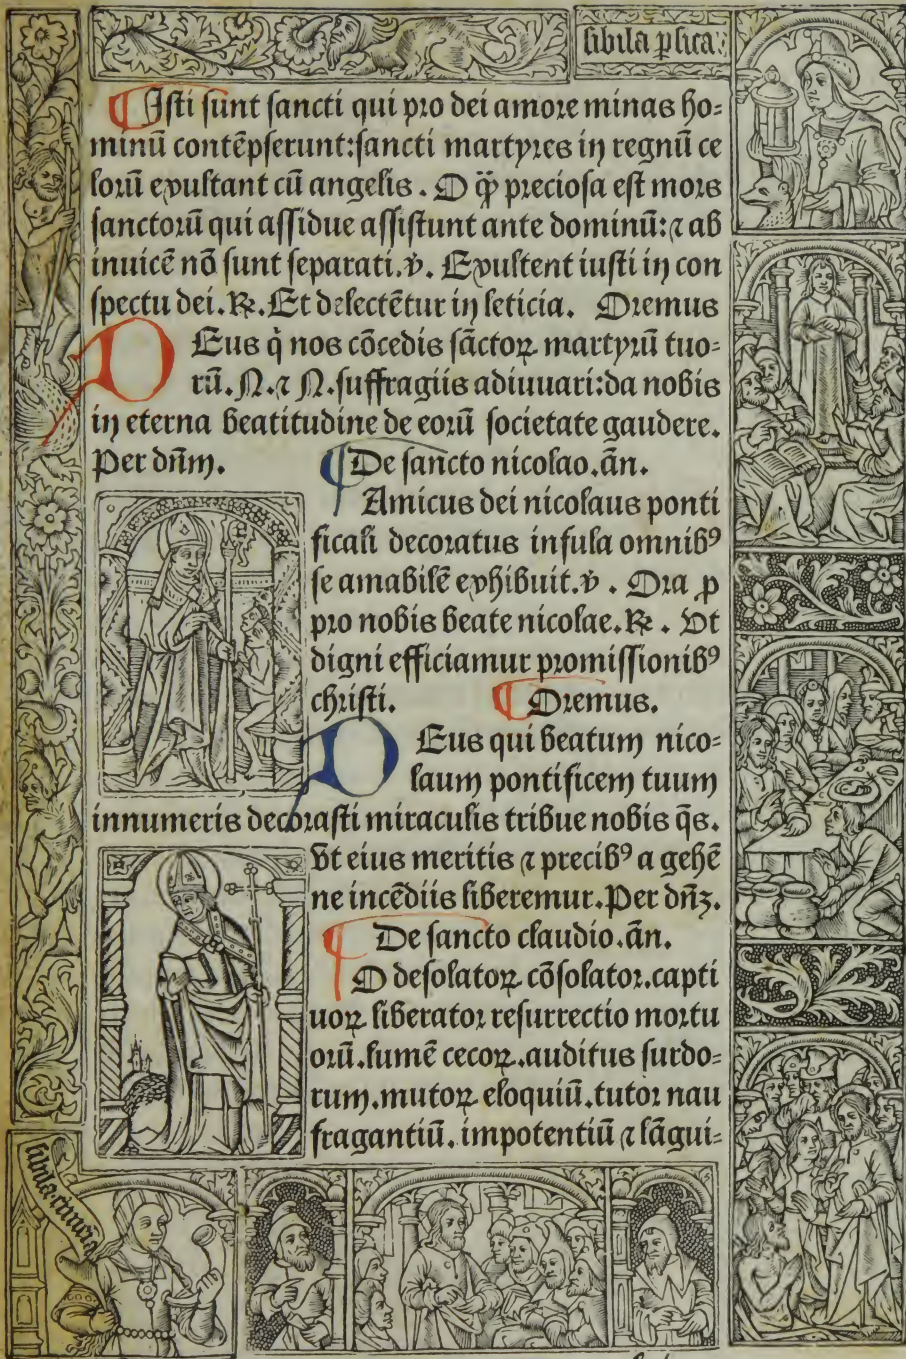 sibila ꝑsica:
¶Isti sunt sancti qui pro dei amore minas ho⸗
minū contēpserunt:sancti martyres in regnū ce
lorū exultant cū angelis . O q̄ꝫ preciosa est mors
sanctorū qui assidue assistunt ante dominū:⁊ ab
inuicē nō sunt separati.℣. Exultent iusti in con
spectu dei.℟.Et delectētur in leticia. Oremus
DEus q̇ nos cōcedis sāctoꝝ martyrū tuo⸗
rū.N.⁊ N.suffragiis adiuuari:da nobis
in eterna beatitudine de eorū societate gaudere.
Per dn̄m. ¶De sancto nicolao.an̄.
Amicus dei nicolaus ponti
ficali decoratus infula omnibꝰ
se amabilē exhibuit.℣ . Ora ꝓ
pro nobis beate nicolae.℟ . Vt
digni efficiamur promissionibꝰ
christi. ¶Oremus.
DEus qui beatum nico⸗
laum pontificem tuum
innumeris decorasti miraculis tribue nobis q̄s.
Vt eius meritis ⁊ precibꝰ a gehē
ne incēdiis liberemur.Per dn̄ꝫ.
¶De sancto claudio.an̄.
O desolatoꝝ cōsolator.capti
uoꝝ liberator resurrectio mortu
orū.lumē cecoꝝ.auditus surdo⸗
rum.mutoꝝ eloquiū.tutor nau
fragantiū.impotentiū ⁊ lāgui⸗